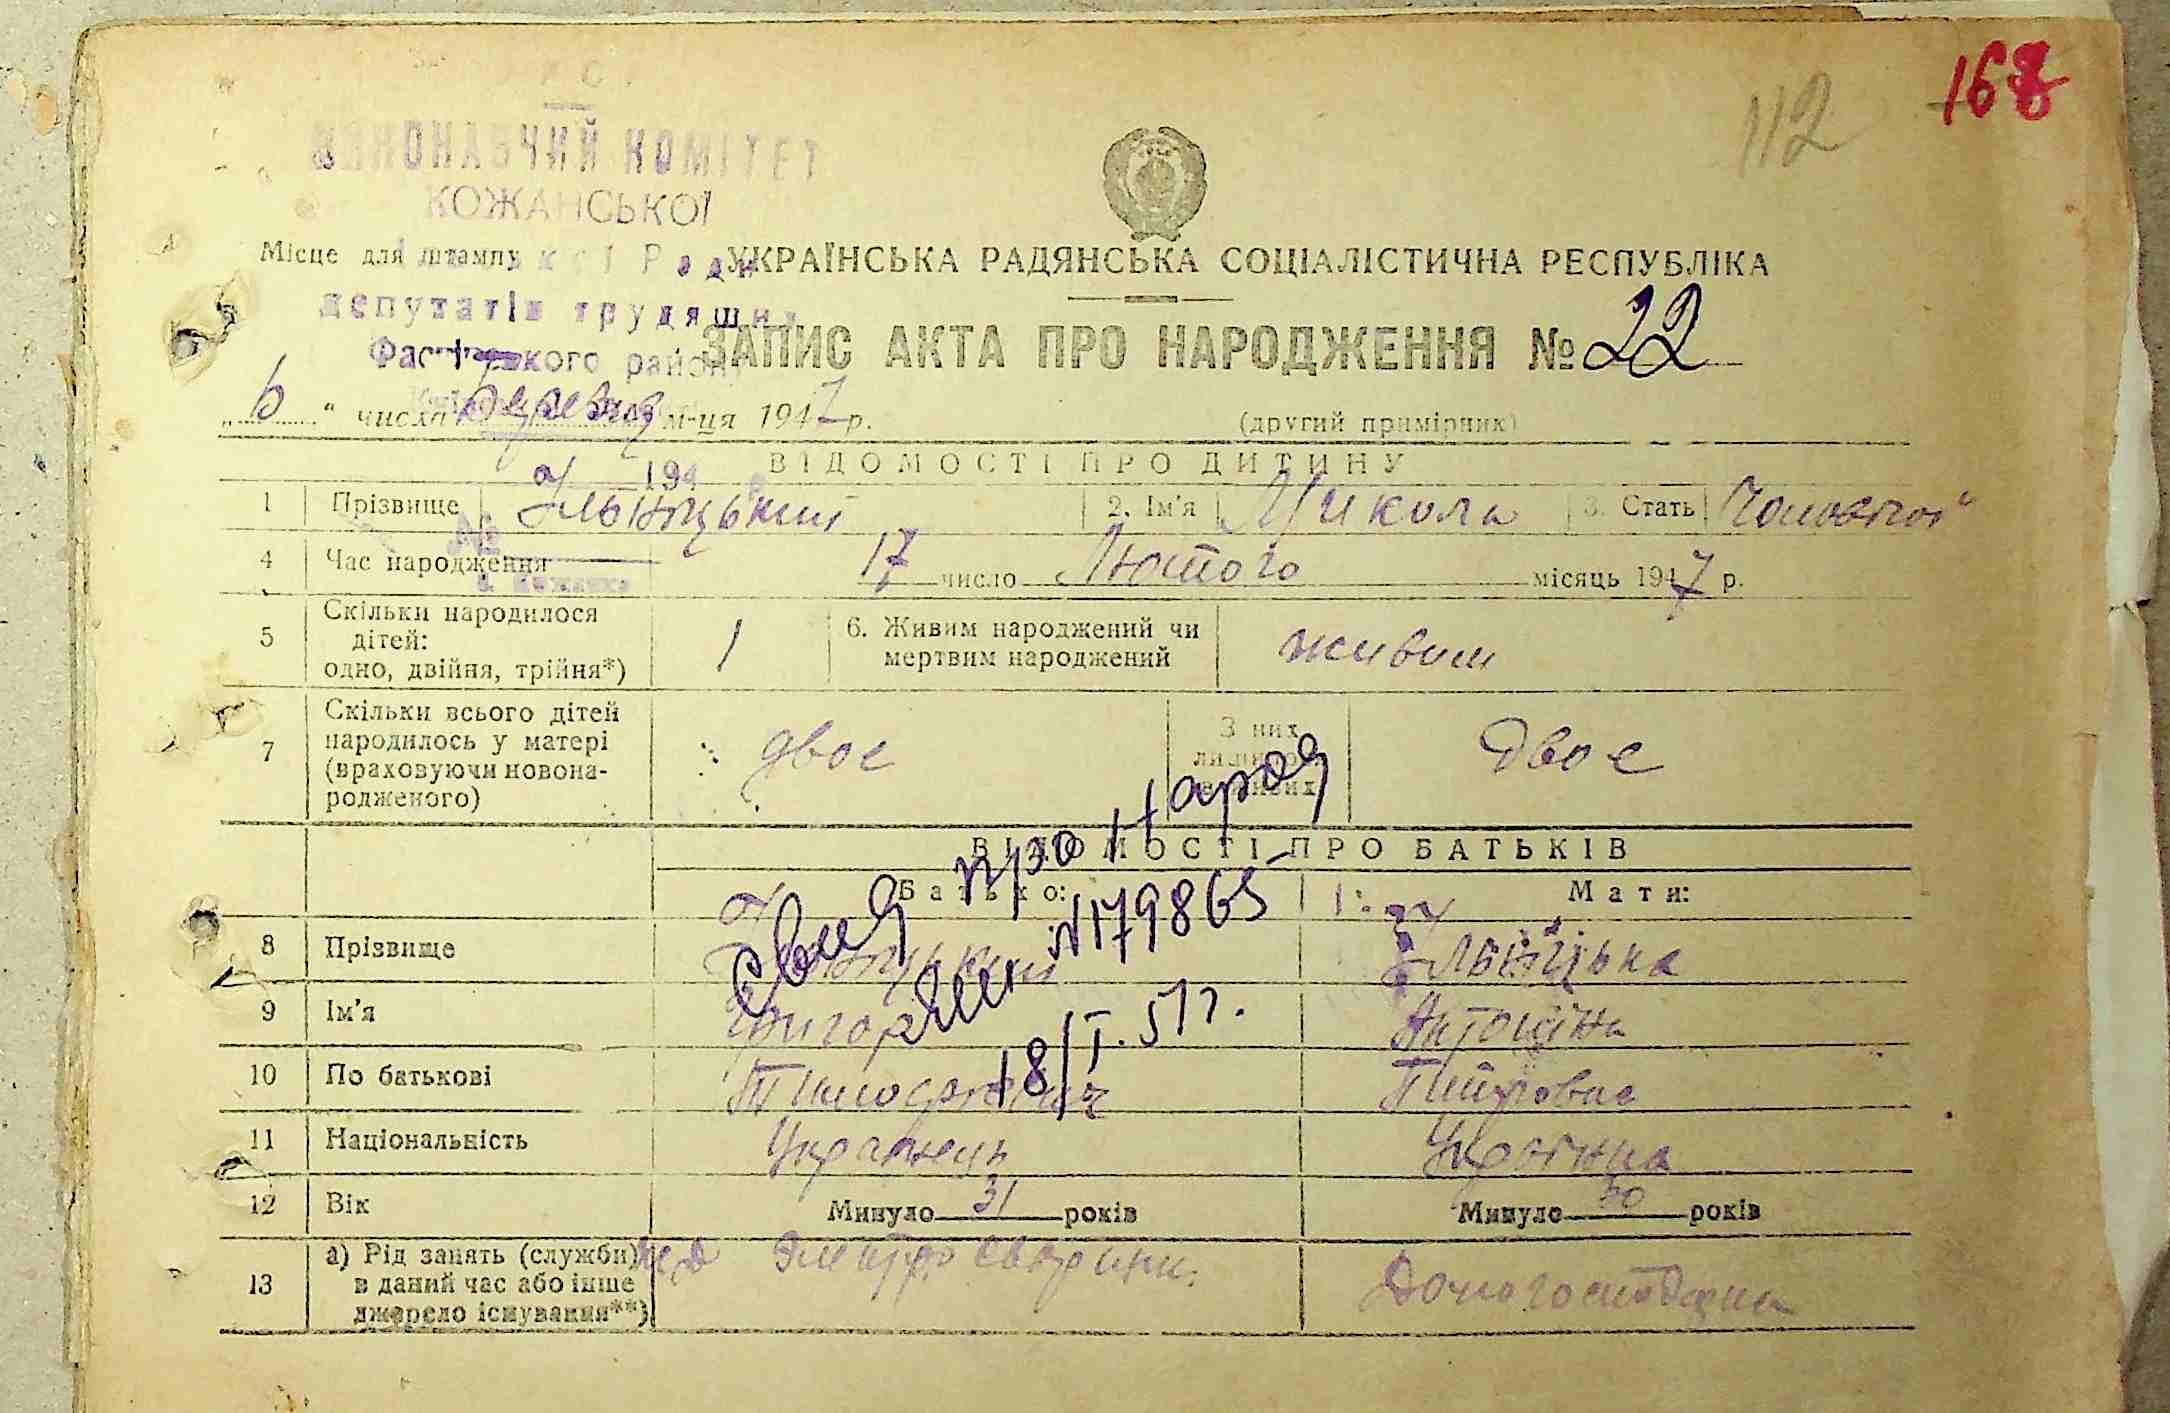 112
168
ВИКОНАВЧИЙ КОМІТЕТ
КОЖАНСЬКОЇ
Місце для штампу
Ради
УКРАЇНСЬКА РАДЯНСЬКА СОЦІАЛІСТИЧНА РЕСПУБЛІКА
депутатів трудящих
ЗАПИС АКТА ПРО НАРОДЖЕННЯ № 22
Фастівського району
„6“ числа березня м-ця 1947 р.
(другий примірник)
ВІДОМОСТІ ПРО ДИТИНУ
194
1 Прізвище Ільніцький 2. Ім'я Микола 3. Стать
№
4 Час народження 17 число Лютого місяць 1947 р.
с. Кожанка
5 Скільки народилося дітей: одно, двійня, трійня*) 1 6. Живим народжений чи мертвим народжений живим
7 Скільки всього дітей народилось у матері (враховуючи новонародженого) двоє З них двоє
ВІДОМОСТІ ПРО БАТЬКІВ
Батько: Мати:
Свид про Народ
№179865
18/I.51 г.
8 Прізвище Ільніцька
9 Ім'я Григорій Антоніна
10 По батькові Тимофієвич Петровна
11 Національність Українець Українка
12 Вік Минуло 31 років Минуло 30 років
13 а) Рід занять (служби) в даний час або інше джерело існування**) Электросварщик Домогосподарка